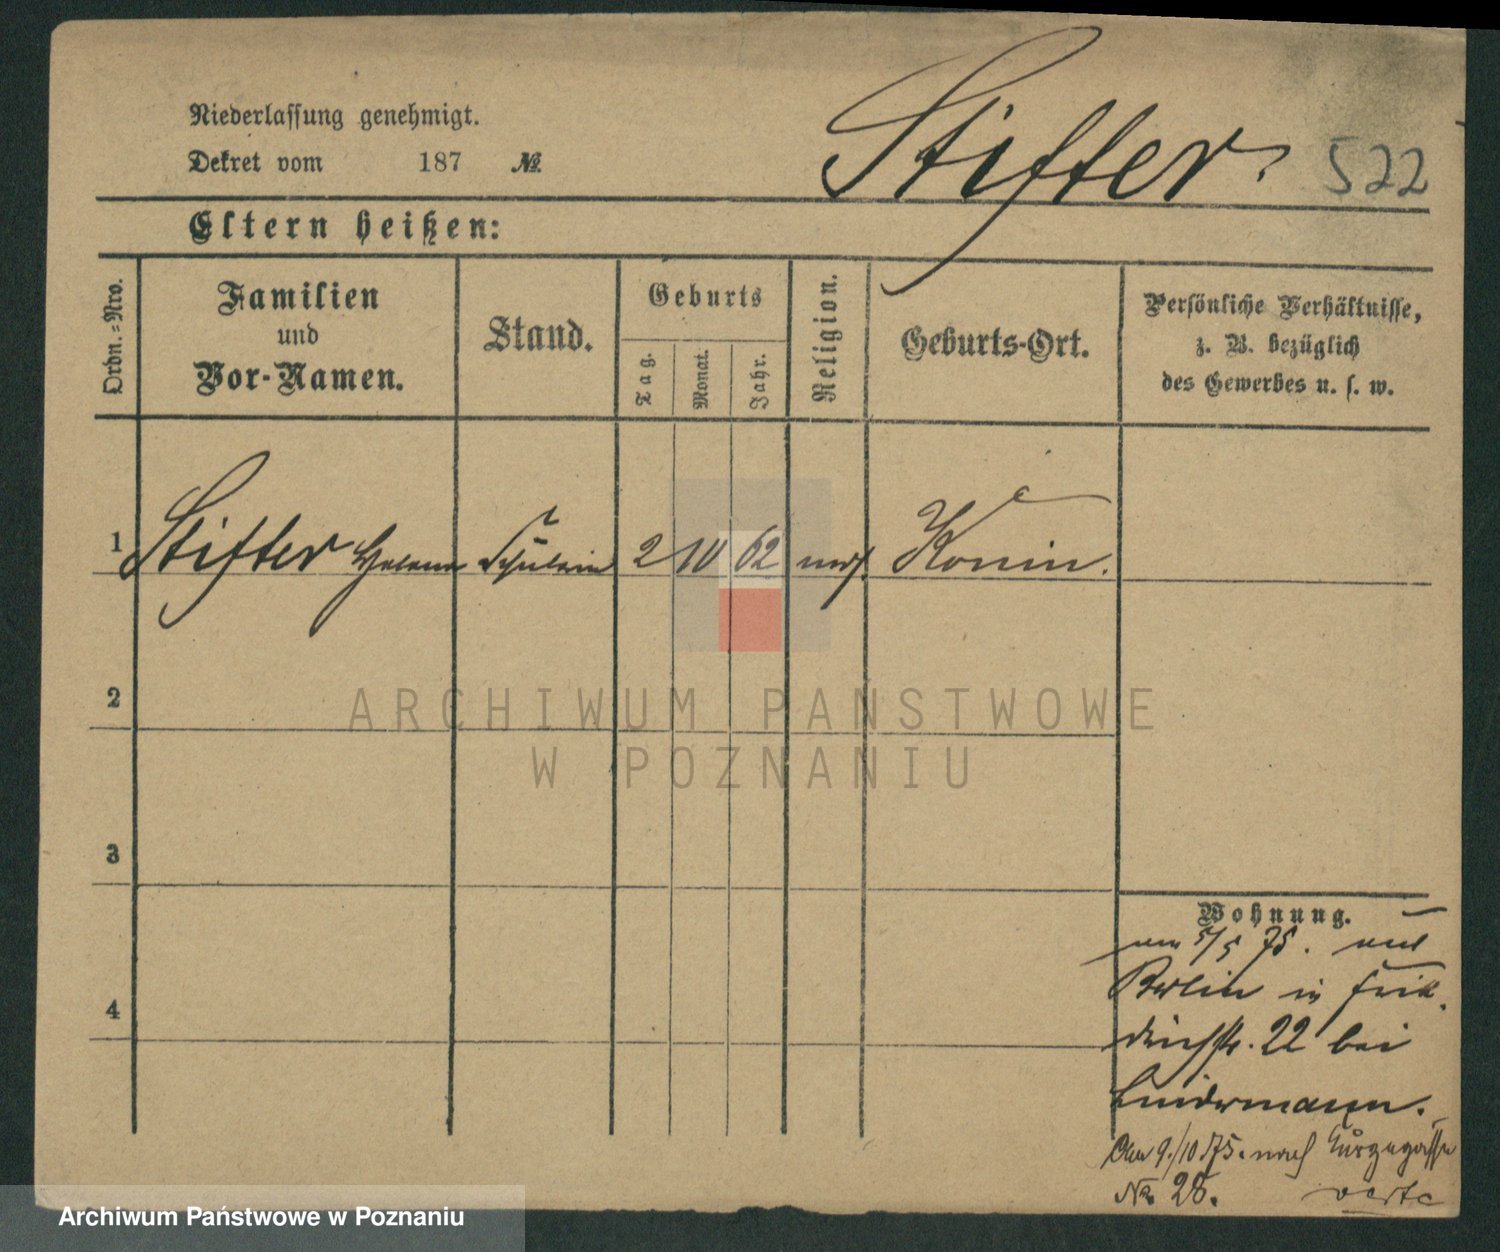 Niederlassung genehmigt.
Dekret vom 187 №
Stifter. 522
Eltern heißen:
Ordn.=Nro.
Familien
und
Vor-Namen.
Stand.
Geburts
Tag.
Monat.
Jahr.
Religion.
Geburts-Ort.
Persönliche Verhältnisse,
z. B. bezüglich
des Gewerbes u. s. w.
1 Stifter Helene Schülerin 2 10 62 mos. Konin.
2
ARCHIWUM PAŃSTWOWE
W POZNANIU
3
4
Wohnung.
5/5 75. aus
Berlin in Frie-
drichstr. 22 bei
Lindermann.
Am 9./10 75. nach
№ 28. verte
Archiwum Państwowe w Poznaniu